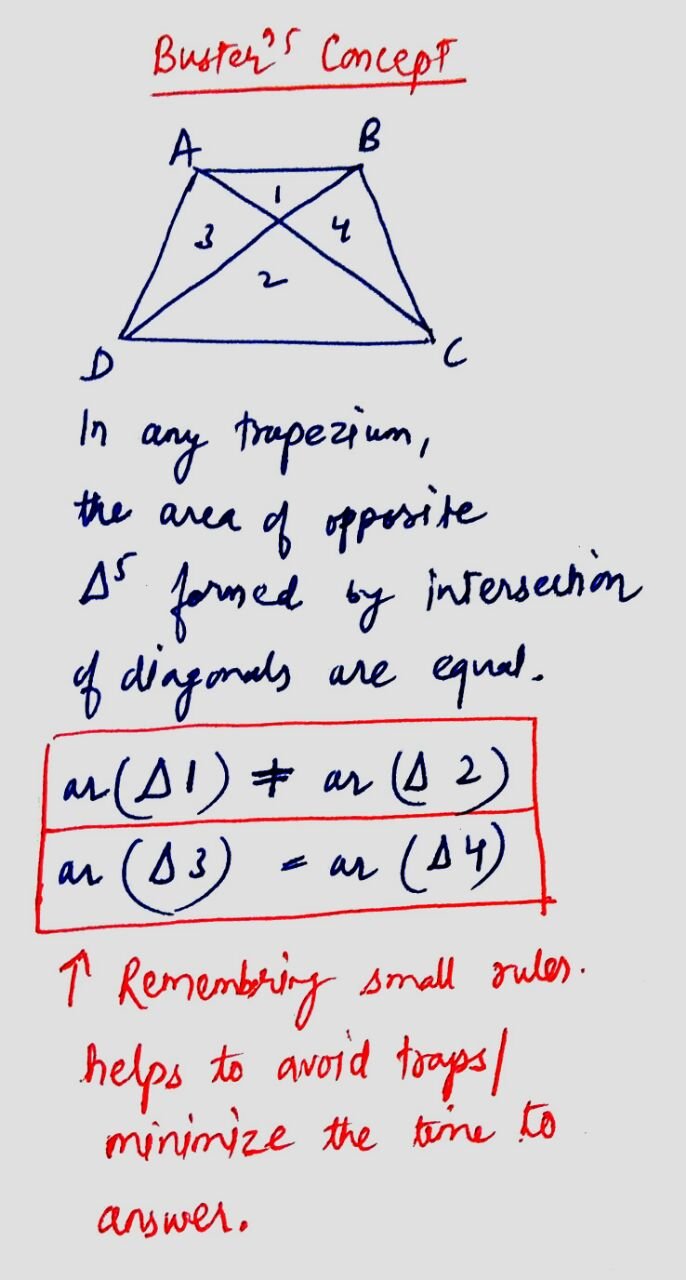 Buster's Concept
A B
1
3 4
2
D C
In any trapezium,
the area of opposite
Δs formed by intersection
of diagonals are equal.
ar(Δ1) ≠ ar (Δ 2)
ar (Δ3) = ar (Δ4)
↑ Remembering small rules.
helps to avoid traps/
minimize the time to
answer.